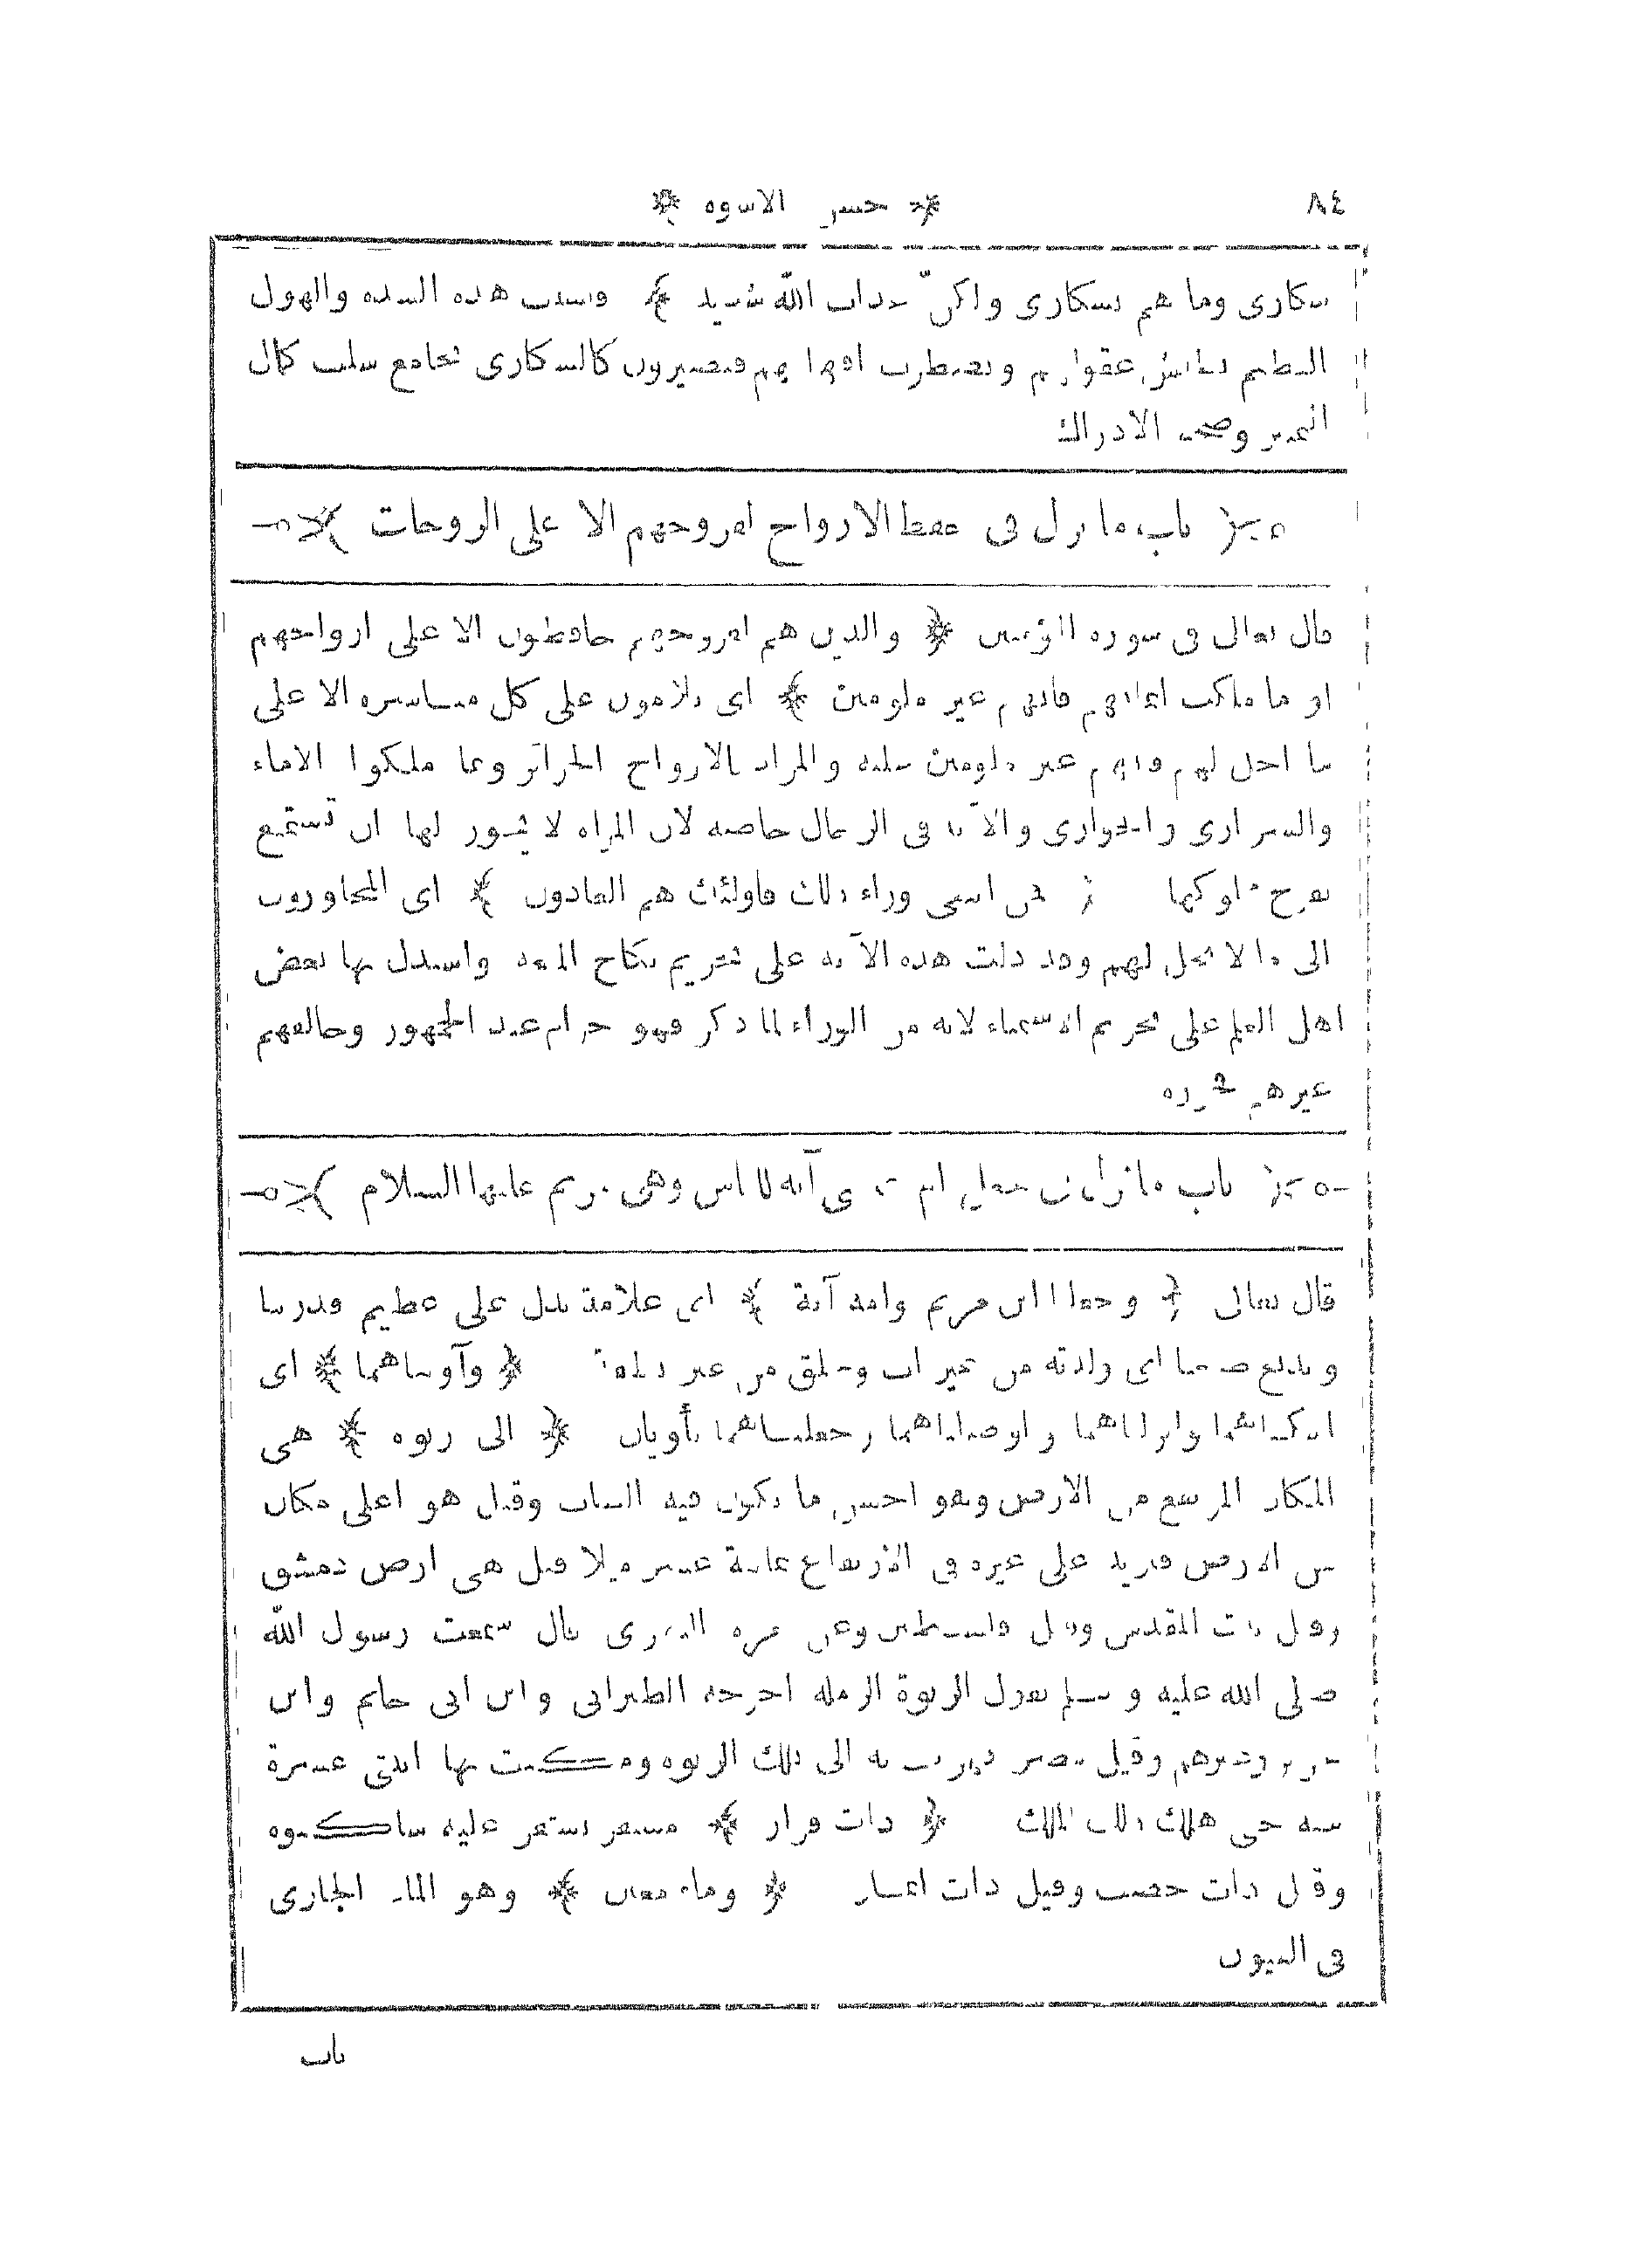 ٨٤
﴿ حسن الاسوه ﴾
سكارى وما هم بسكارى ولكنّ عذاب الله شديد ﴾ وبسبب هذه الشدة والهول
العظيم تطيش عقولهم وتضطرب افهامهم فيصيرون كالسكارى بجامع سلب كمال
التمييز وصحة الادراك
باب ما نزل فى حفظ الازواج لفروجهم الا على الزوجات
قال تعالى فى سورة المؤمنين ﴿ والذين هم لفروجهم حافظون الا على ازواجهم
او ما ملكت ايمانهم فانهم غير ملومين ﴾ اى يلامون على كل مباشرة الا على
ما احل لهم فانهم غير ملومين عليه والمراد بالازواج الحرائر وبما ملكوا الاماء
والسرارى والجوارى والآية فى الرجال خاصة لان المرأة لا يجوز لها ان تستمتع
بفرج مملوكها ﴿ فمن ابتغى وراء ذلك فاولئك هم العادون ﴾ اى المجاوزون
الى ما لا يحل لهم وقد دلت هذه الآية على تحريم نكاح المتعة واستدل بها بعض
اهل العلم على تحريم الاستمناء لانه من الوراء لما ذكر فهو حرام عند الجمهور وخالفهم
غيرهم فجوزه
باب ما نزل فى جعل ابن آية للناس وهى مريم عليها السلام
قال تعالى ﴿ وجعلنا ابن مريم وامه آية ﴾ اى علامة تدل على عظيم قدرتنا
وبديع صنعنا اى ولدته من غير اب وخلق من غير نطفة ﴿ وآويناهما ﴾ اى
اسكناهما وانزلناهما واوصلناهما وجعلناهما يأويان ﴿ الى ربوة ﴾ هى
المكان المرتفع من الارض وهو احسن ما يكون فيه النبات وقيل هو اعلى مكان
من الارض فيزيد على غيره فى الارتفاع ثمانية عشر ميلا قيل هى ارض دمشق
وقيل بيت المقدس وقيل فلسطين وعن مرة البهزى قال سمعت رسول الله
صلى الله عليه وسلم يقول الربوة الرملة اخرجه الطبرانى وابن ابى حاتم وابن
جرير وغيرهم وقيل مصر فهربت به الى تلك الربوة ومكثت بها اثنتى عشرة
سنة حتى هلك ذلك الملك ﴿ ذات قرار ﴾ مستقر يستقر عليه ساكنوه
وقيل ذات خصب وقيل ذات اثمار ﴿ وماء معين ﴾ وهو الماء الجارى
فى العيون
باب